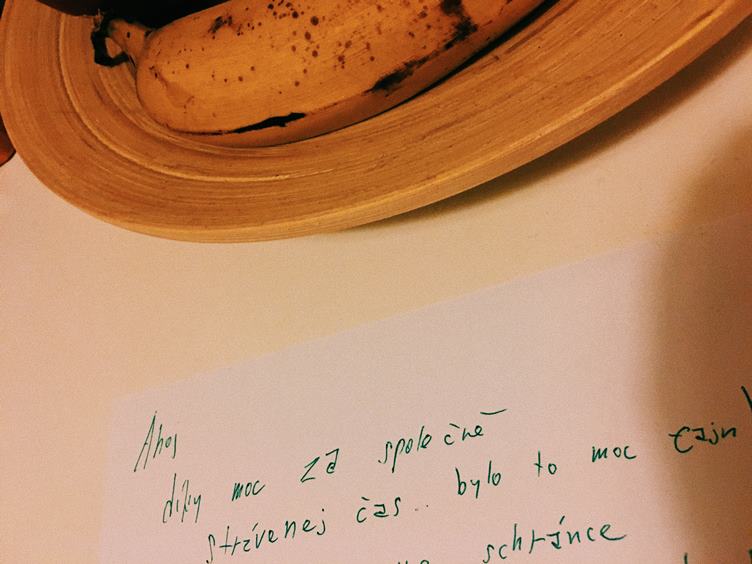 Ahoj
díky moc za společně
strávenej čas.. bylo to moc fajn
schránce